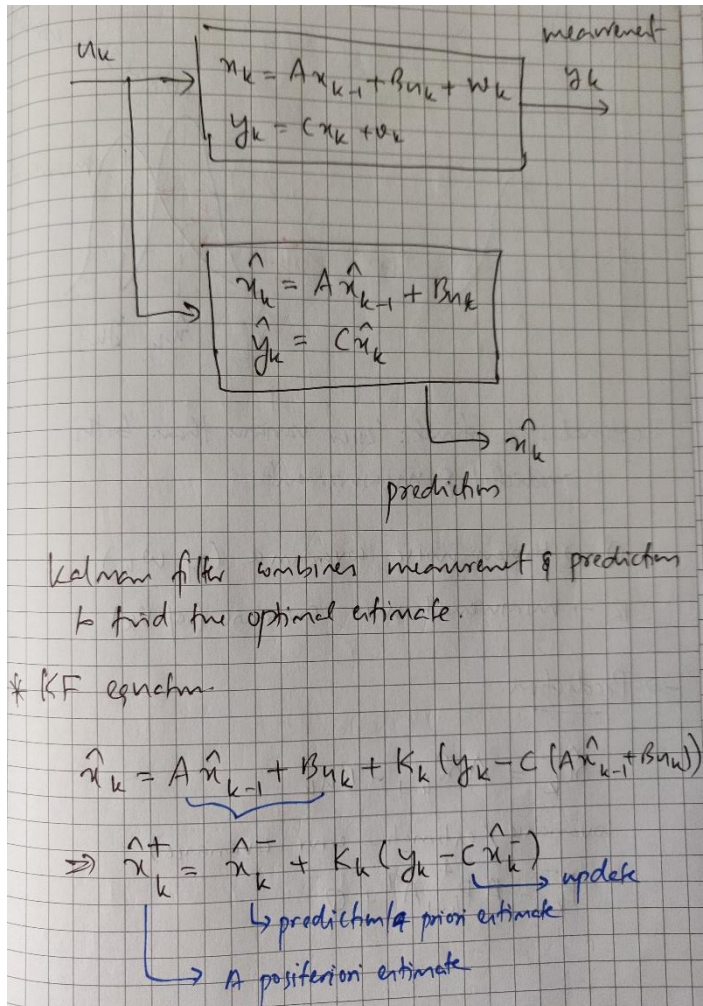 u_k
measurement
x_k = Ax_{k-1} + Bu_k + w_k
y_k
y_k = Cx_k + v_k
x̂_k = Ax̂_{k-1} + Bu_k
ŷ_k = Cx̂_k
x̂_k
prediction
Kalman filter combines measurement & prediction
to find the optimal estimate.
* KF equation.
x̂_k = Ax̂_{k-1} + Bu_k + K_k(y_k - C(Ax̂_{k-1} + Bu_k))
⇒ x̂_k^+ = x̂_k^- + K_k(y_k - Cx̂_k^-)
→ update
↳ prediction/a priori estimate
→ A positeriori estimate